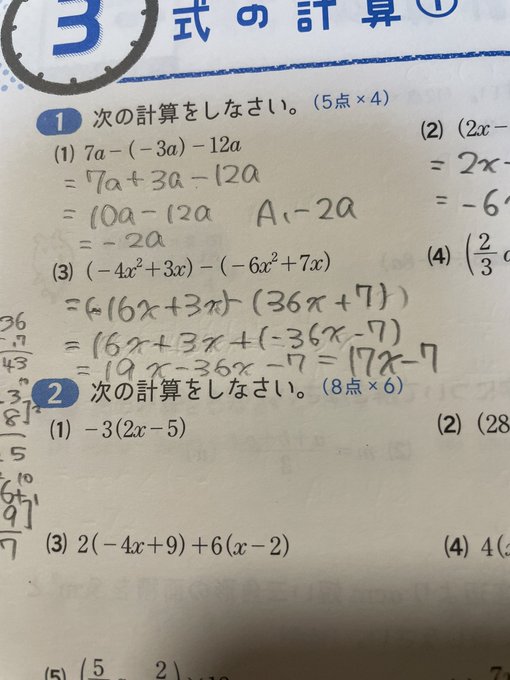 3 式の計算①
1 次の計算をしなさい。(5点×4)
(1) 7a-(-3a)-12a
= 7a+3a-12a
= 10a-12a A,-2a
= -2a
(2) (2x-
= 2x-
= -6
(3) (-4x²+3x)-(-6x²+7x)
=(-16x+3x)-(36x+7)
= 16x+3x+(-36x-7)
= 19x-36x-7 = 17x-7
(4) (2/3 a
36
43
2 次の計算をしなさい。(8点×6)
(1) -3(2x-5)
(2) (28
(3) 2(-4x+9)+6(x-2)
(4) 4(
(5) (5